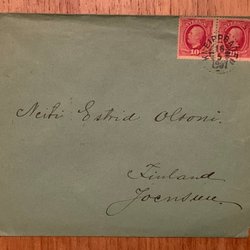 10
Neiti Estrid Olsoni.
Finland
Joensuu.